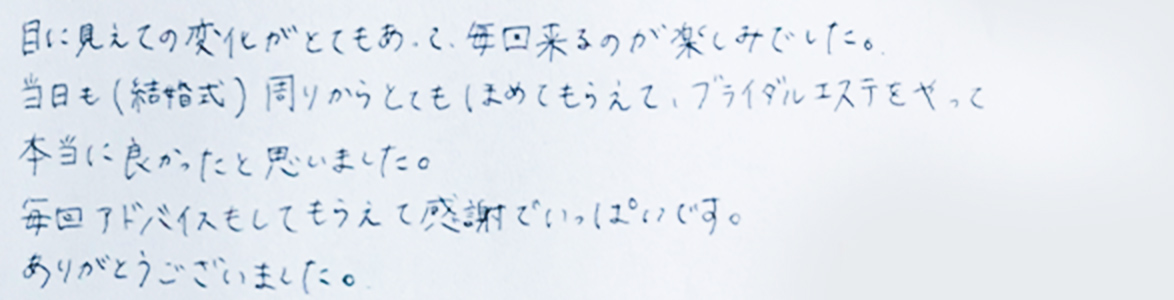 目に見えての変化がとてもあって、毎回来るのが楽しみでした。
当日も(結婚式)周りからとてもほめてもらえて、ブライダルエステをやって
本当に良かったと思いました。
毎回アドバイスもしてもらえて感謝でいっぱいです。
ありがとうございました。